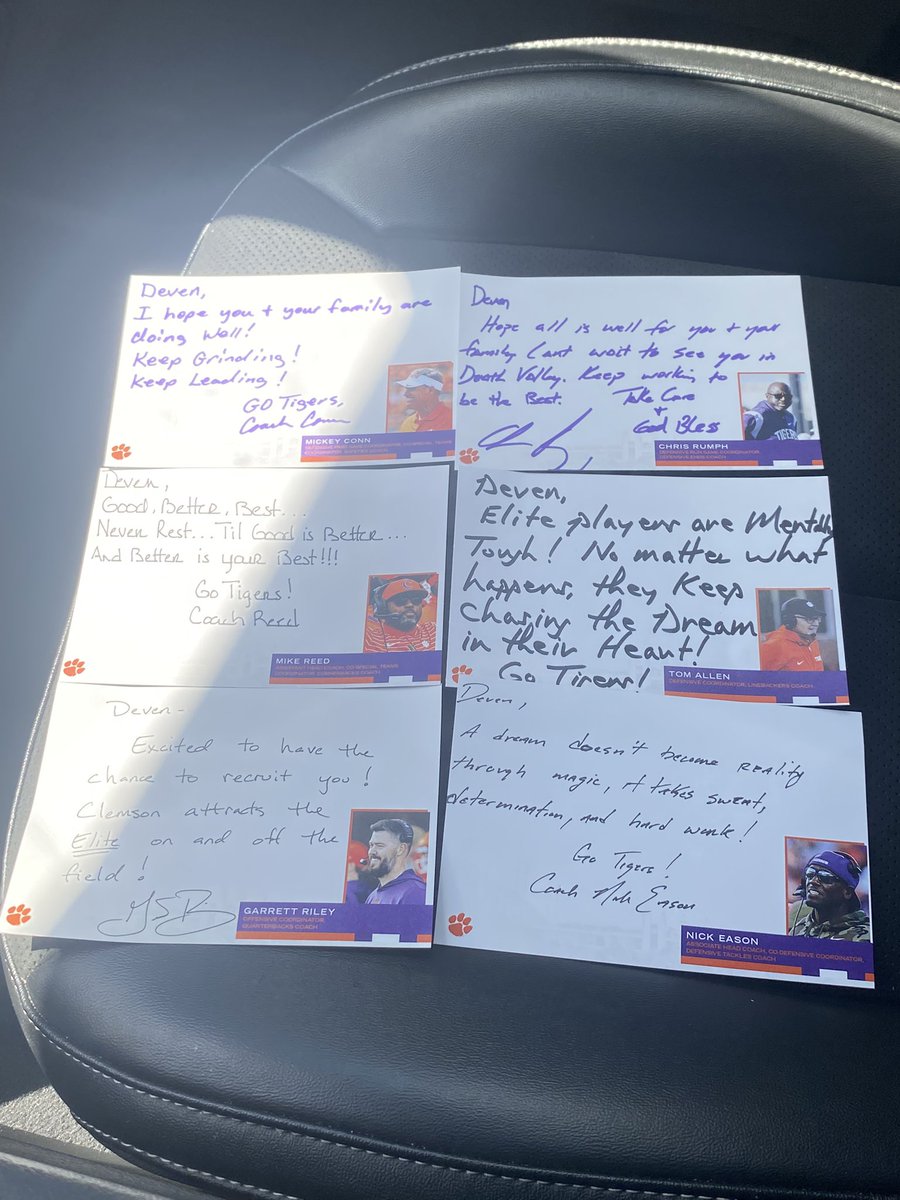 Deven,
I hope you + your family are
doing well!
Keep Grinding!
Keep Leading!
GO Tigers,
Coach Conn
MICKEY CONN
Deven
Hope all is well for you + your
family Cant wait to see you in
Death Valley. Keep working to
be the Best. Take Care
+
God Bless
CHRIS RUMPH
DEFENSIVE RUN GAME COORDINATOR,
DEFENSIVE ENDS COACH
Deven,
Good, Better, Best...
Never Rest... Til Good is Better...
And Better is your Best!!!
Go Tigers!
Coach Reed
MIKE REED
ASSISTANT HEAD COACH, CO-SPECIAL TEAMS
COORDINATOR, CORNERBACKS COACH
Deven,
Elite players are Mentally
Tough! No matter what
happens, they Keep
Chasing the Dream
in their Heart!
Go Tigers!
TOM ALLEN
DEFENSIVE COORDINATOR, LINEBACKERS COACH
Deven-
Excited to have the
chance to recruit you!
Clemson attracts the
Elite on and off the
field!
GARRETT RILEY
OFFENSIVE COORDINATOR,
QUARTERBACKS COACH
Deven,
A dream doesn't become reality
through magic, it takes sweat,
determination, and hard work!
Go Tigers!
Coach Nick Eason
NICK EASON
ASSOCIATE HEAD COACH, CO-DEFENSIVE COORDINATOR,
DEFENSIVE TACKLES COACH